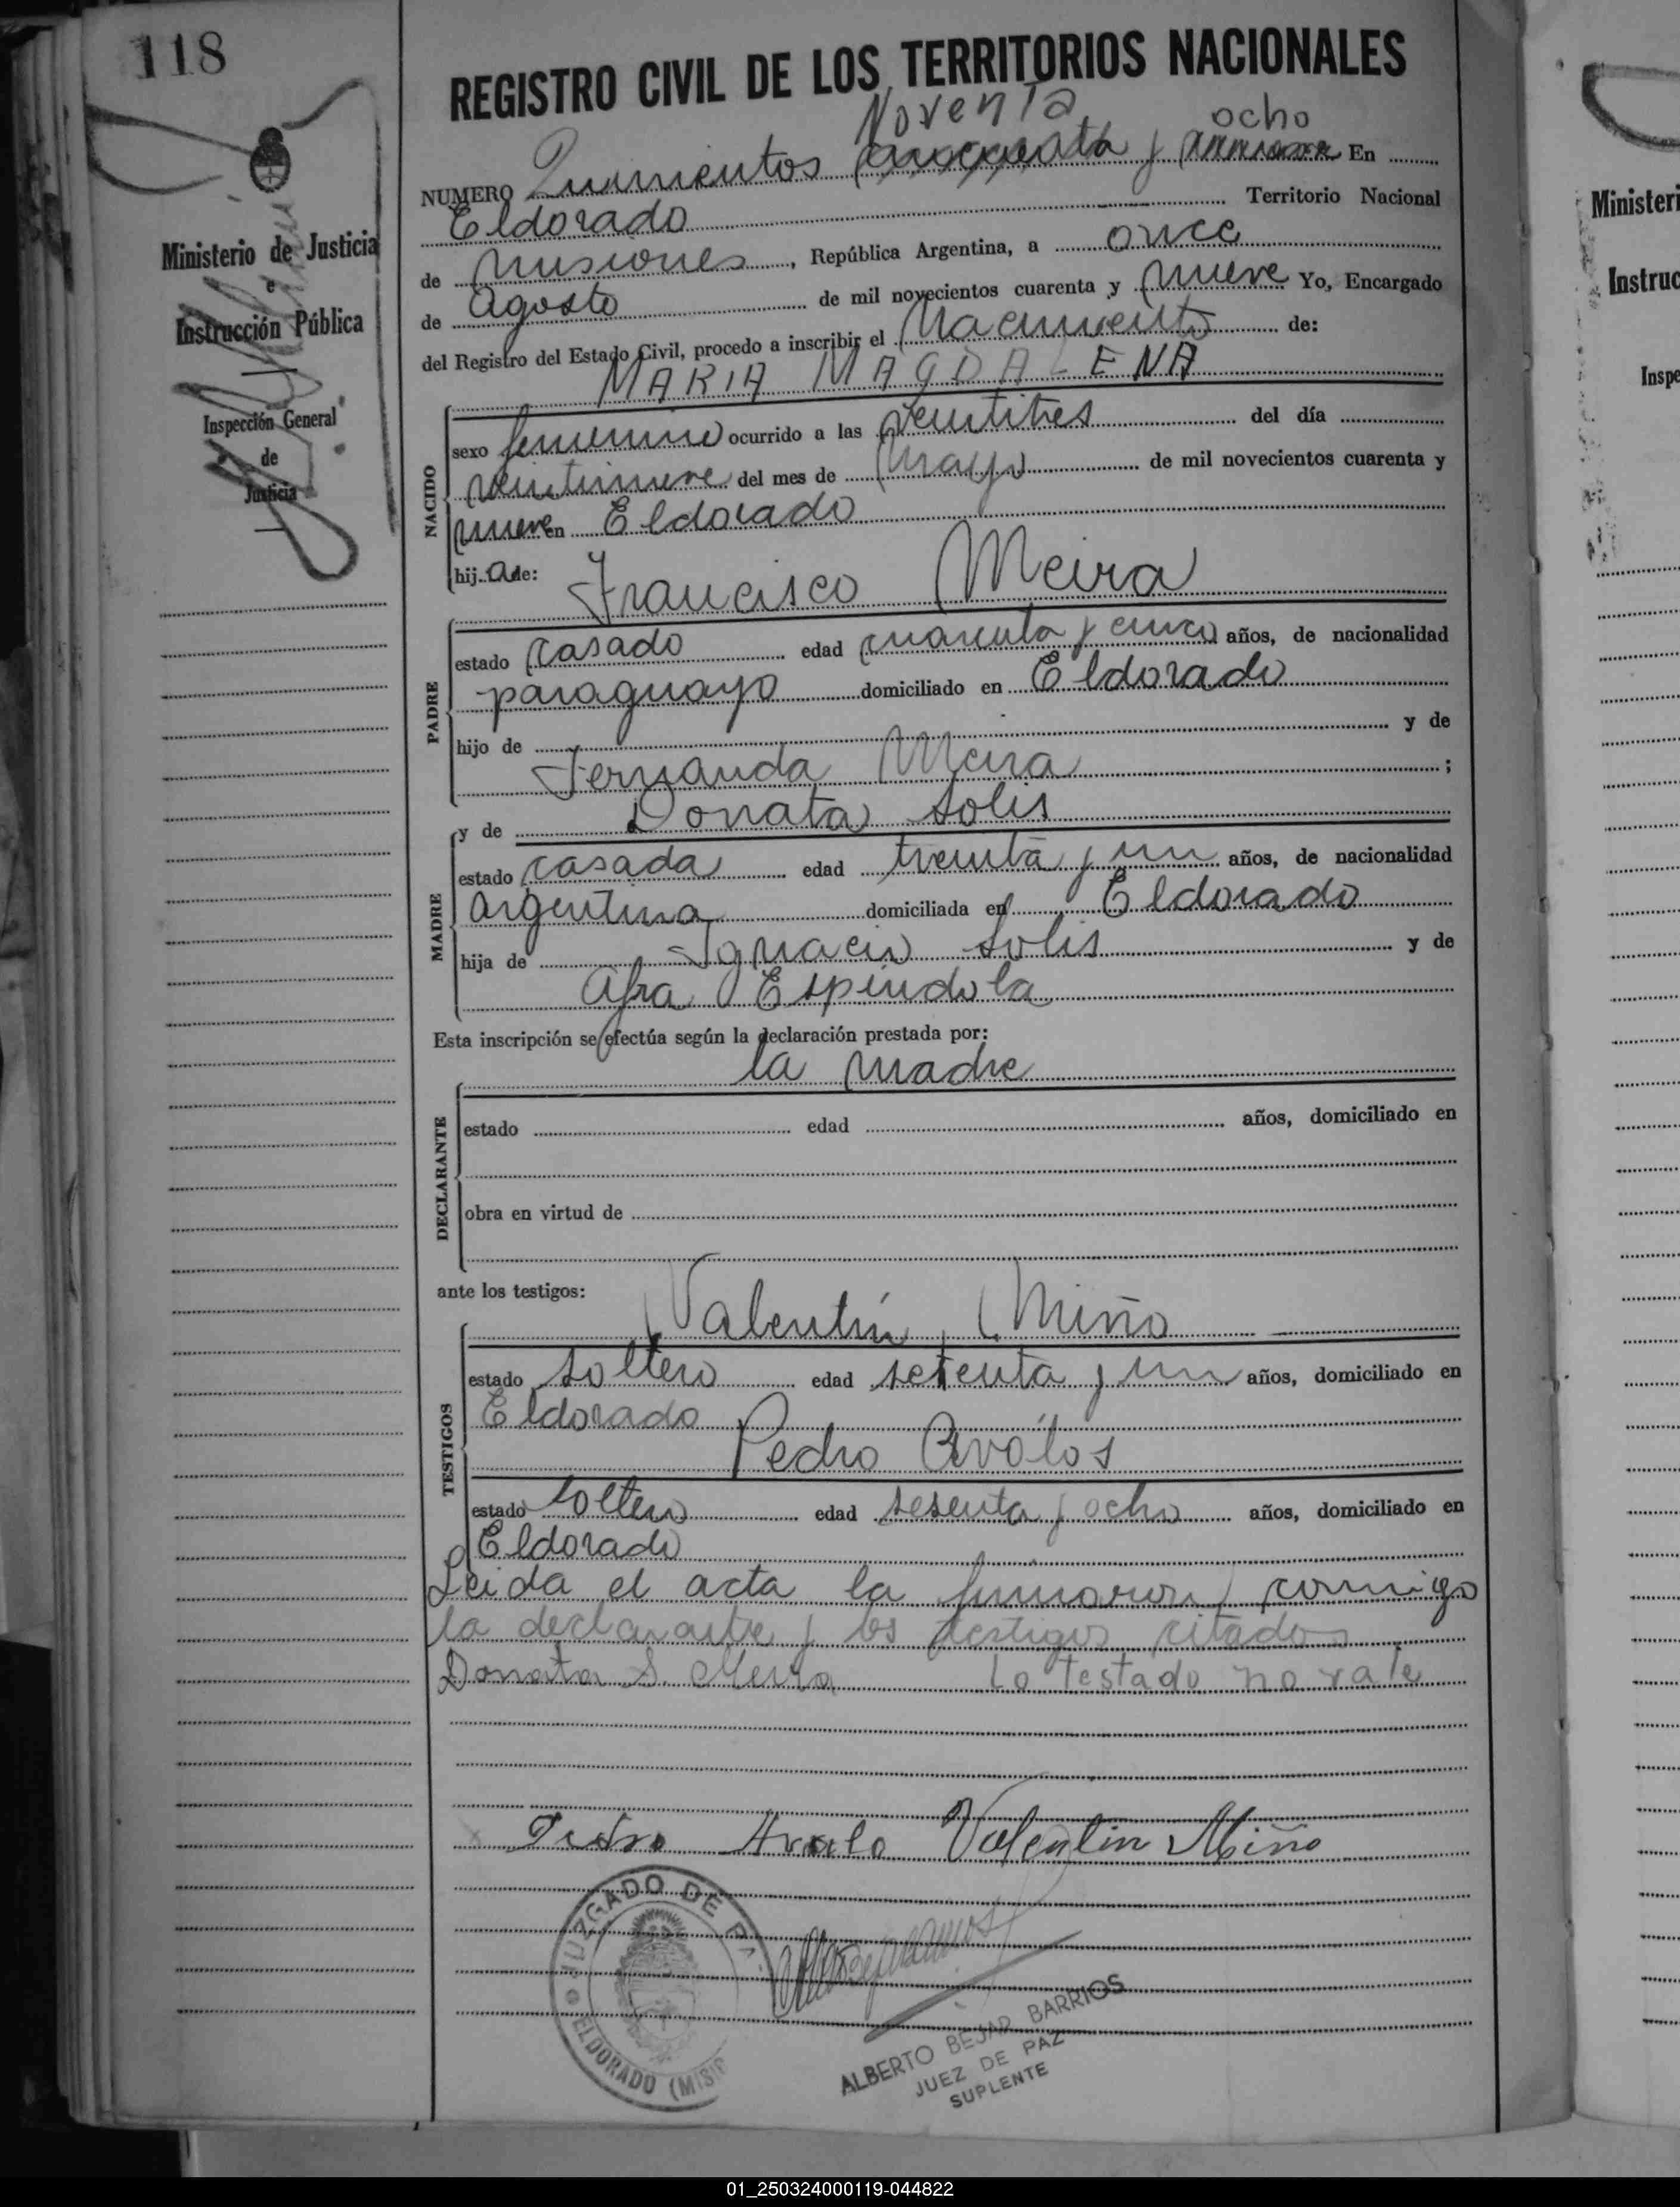 118
REGISTRO CIVIL DE LOS TERRITORIOS NACIONALES
Noventa ocho
NUMERO Quinientos y En
Eldorado Territorio Nacional
de Misiones, República Argentina, a once
de Agosto de mil novecientos cuarenta y nueve Yo, Encargado
del Registro del Estado Civil, procedo a inscribir el Nacimiento de:
MARIA MAGDALENA
Ministerio de Justicia
e
Instrucción Pública
Inspección General
de
Justicia
NACIDO
sexo femenino ocurrido a las veintitres del día
veintinueve del mes de mayo de mil novecientos cuarenta y
nueve en Eldorado
hij a de: Francisco Meira
PADRE
estado casado edad cuarenta y cinco años, de nacionalidad
paraguayo domiciliado en Eldorado
hijo de y de
Fernanda Meira ;
y de Donata Solis
MADRE
estado casada edad treinta y un años, de nacionalidad
argentina domiciliada en Eldorado
hija de Ignacio Solis y de
Afra Espindola
Esta inscripción se efectúa según la declaración prestada por:
la madre
DECLARANTE
estado edad años, domiciliado en
obra en virtud de
ante los testigos:
Valentín Miño
TESTIGOS
estado soltero edad setenta y un años, domiciliado en
Eldorado
Pedro Aválos
estado soltero edad sesenta y ocho años, domiciliado en
Eldorado
Leida el acta la firmaron conmigo
la declarante y los testigos citados
Donata S. Meira Lo testado no vale
Pedro Avalo Valentin Miño
JUZGADO DE PAZ
ELDORADO (MISIO
ALBERTO BEJAR BARRIOS
JUEZ DE PAZ
SUPLENTE
Ministeri
Instruc
Inspe
01_250324000119-044822